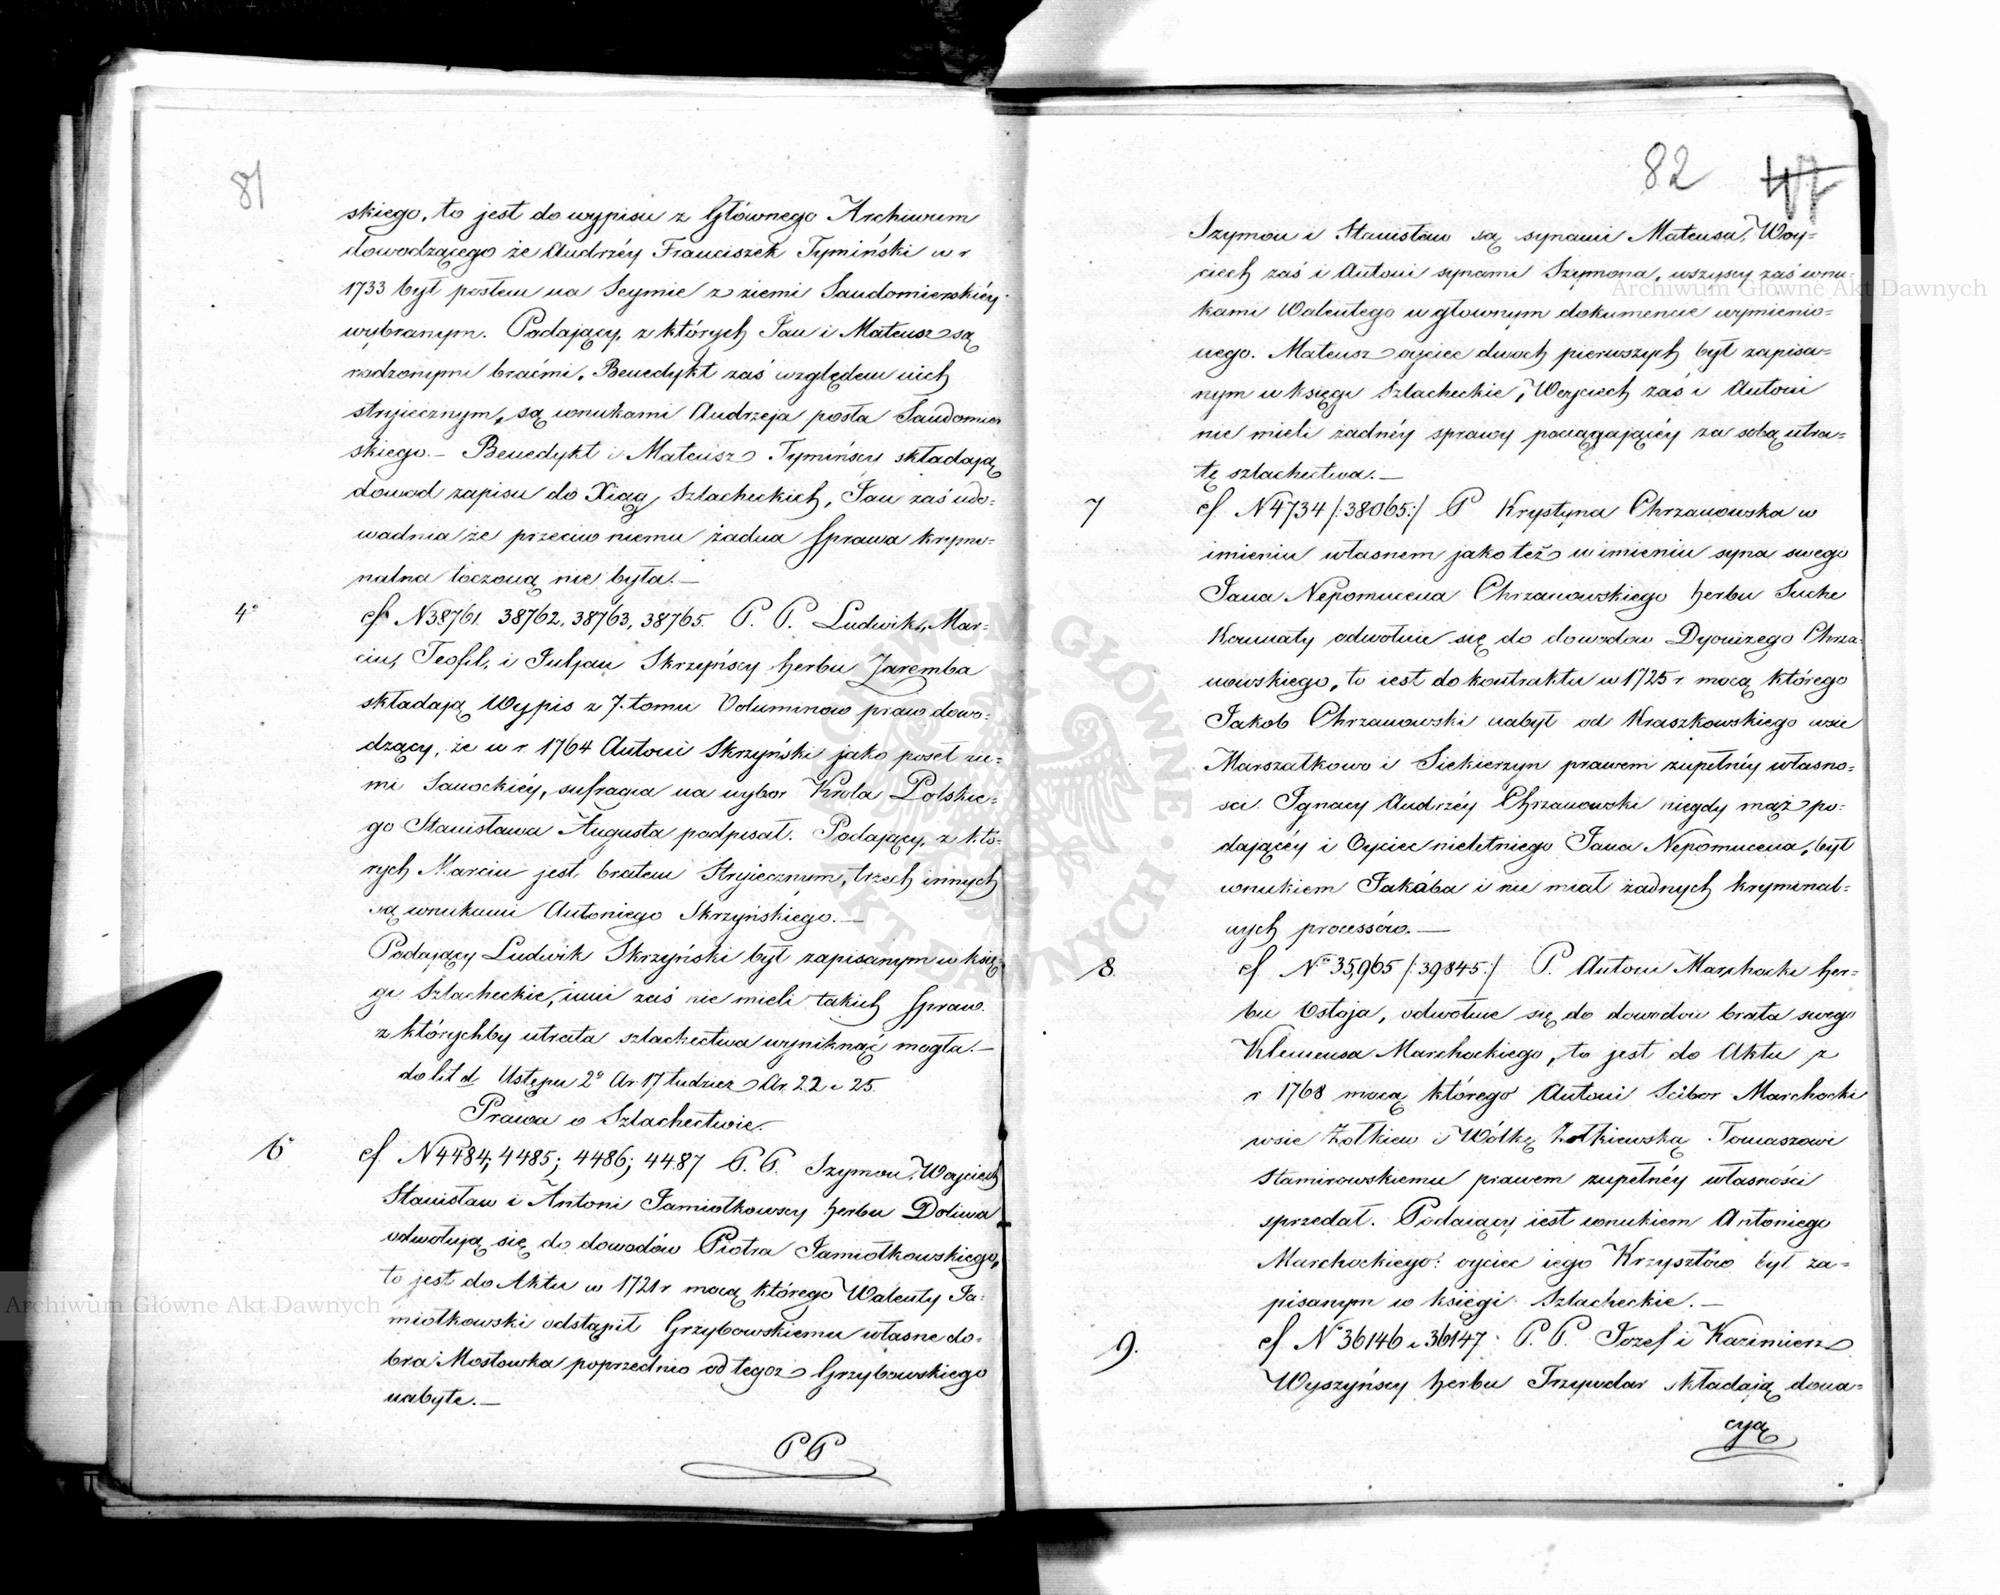 81
skiego, to jest do wypisu z Głównego Archiwum
dowodzącego że Andrzéy Franciszek Tymiński w r
1733 był posłem na Seymie z ziemi Sandomierskiéy
wybranym. Podający, z których Jan i Mateusz są
rodzonymi braćmi, Benedykt zaś względem nich
stryiecznym, są wnukami Andrzeja posła Sandomier
skiego. – Benedykt i Mateusz Tymińscy składają
dowod zapisu do Xiąg Szlacheckich, Jan zaś udo-
wadnia że przeciw niemu żadna sprawa krymi-
nalna toczoną nie była. —
4° cf N38761. 38762, 38763, 38765. P. P. Ludwik, Mar-
cin, Teofil, i Juljan Skrzyńscy herbu Zaremba
składają Wypis z 7. tomu Voluminow praw dowo-
dzący, że w r. 1764 Antoni Skrzyński jako poseł zie-
mi Sanockiéy, sufragia na wybor Krola Polskie-
go Stanisława Augusta podpisał. Podający, z kto-
rych Marcin jest bratem Stryiecznym, trzech innych
są wnukami Antoniego Skrzyńskiego. —
Podający Ludwik Skrzyński był zapisanym w księ-
gi Szlacheckie, inni zaś nie mieli takich spraw
z którychby utrata szlachectwa wyniknąć mogła. —
do lit d. Ustępu 2° Ar. 17 tudzież Ar. 22 i 25.
Prawa o Szlachectwie.
6 cf. N4484; 4485; 4486; 4487 P. P. Szymon, Woyciech
Stanisław i Antoni Jamiołkowscy herbu Doliwa
odwołują się do dowodów Piotra Jamiołkowskiego,
to jest do Aktu w 1721 r mocą którego Walenty Ja-
miołkowski odstąpił Grzybowskiemu własne do-
bra Mostowka poprzednio od tegoż Grzybowskiego
nabyte. —
P P
82 47
Szymon i Stanisław są synami Mateusa, Woy-
ciech zaś i Antoni synami Szymona, wszyscy zaś wnu-
kami Walentego w głownym dokumencie wymienio-
nego. Mateusz oyciec dwoch pierwszych był zapisa-
nym w księgi Szlacheckie, Woyciech zaś i Antoni
nie mieli żadnéy sprawy pociągaiącéy za sobą utra-
tę szlachectwa. —
7 cf. N4734 /:38065:/ P Krystyna Chrzanowska w
imieniu własnem jako też w imieniu syna swego
Jana Nepomucena Chrzanowskiego herbu Suche
Komnaty odwołuie się do dowodow Dyonizego Chrza-
nowskiego, to iest do kontraktu w 1725 r. mocą którego
Jakob Chrzanowski nabył od Kraszkowskiego wsie
Marszałkowo i Siekierzyn prawem zupełnéy własno-
sci. Ignacy Andrzéy Chrzanowski niegdy mąż po-
dającéy i Oyciec nieletniego Jana Nepomucena, był
wnukiem Jakóba i nie miał żadnych kryminal-
nych processów. —
8 cf N° 35,965 /:39845:/ P. Antoni Marchocki her-
bu Ostoja, odwołuie się do dowodow brata swego
Klemensa Marchockiego, to jest do Aktu z
r 1768 mocą którego Antoni Scibor Marchocki
wsie Żołkiew i Wólkę Żołkiewską Tomaszowi
Stamirowskiemu prawem zupełnéy własności
sprzedał. Podaiący iest wnukiem Antoniego
Marchockiego: oyciec iego Krzysztów był za-
pisanym w księgi Szlacheckie. —
9. cf N° 36146 i 36147. P. P. Jozef i Kazimierz
Wyszyńscy herbu Trzywdar składają dona-
cyą
Archiwum Główne Akt Dawnych
Archiwum Główne Akt Dawnych
ARCHIWUM GŁÓWNE AKT DAWNYCH